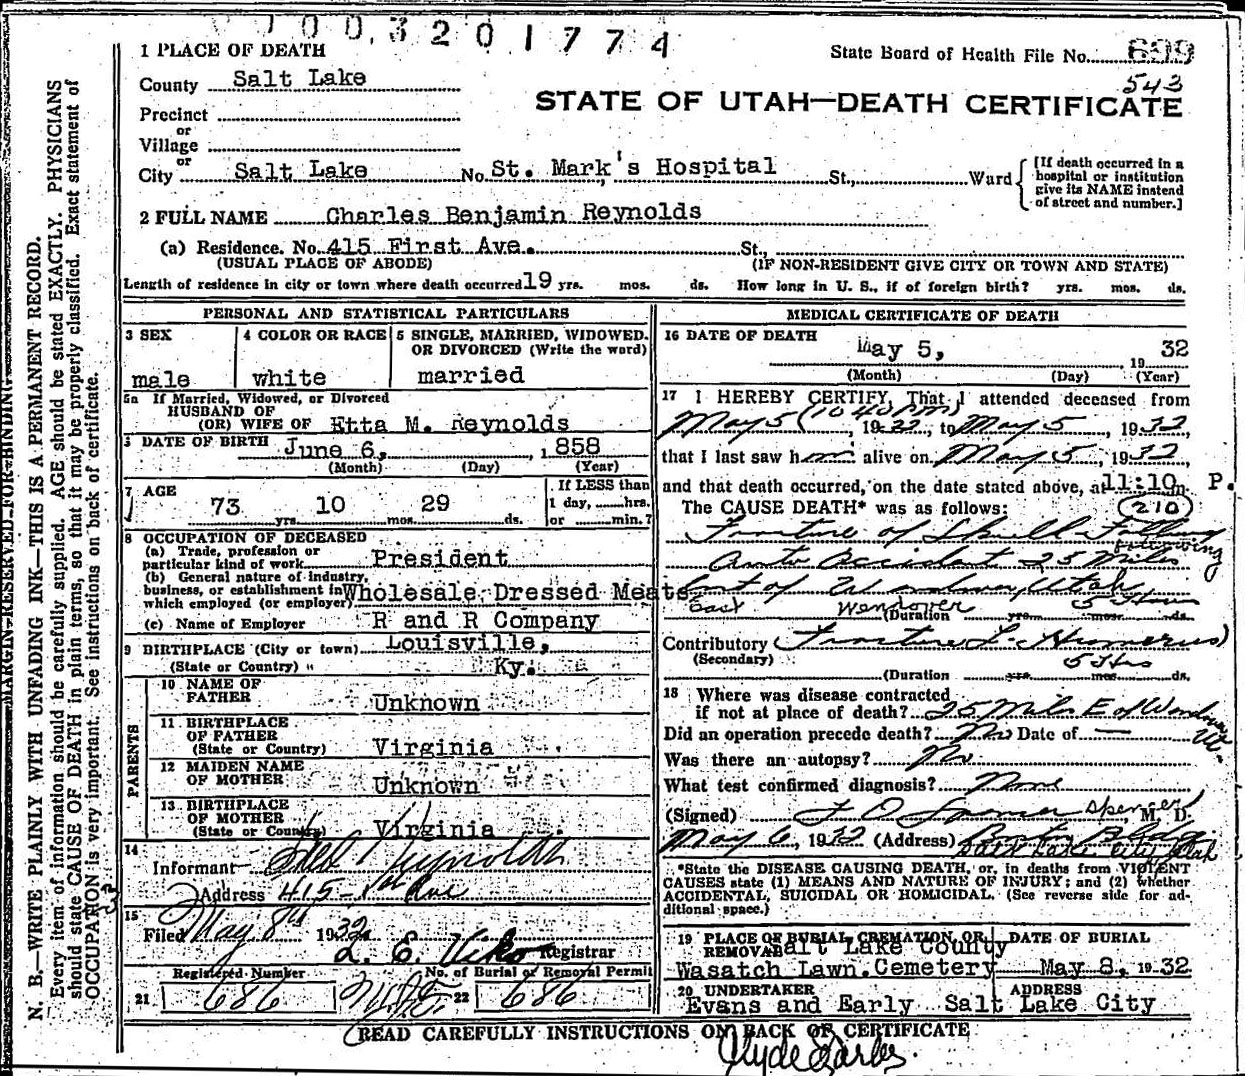 1003201774
1 PLACE OF DEATH
State Board of Health File No. 699
543
County Salt Lake
STATE OF UTAH—DEATH CERTIFICATE
Precinct
or
Village
or
City Salt Lake No. St. Mark's Hospital St., Ward
[If death occurred in a
hospital or institution
give its NAME instead
of street and number.]
2 FULL NAME Charles Benjamin Reynolds
(a) Residence. No. 415 First Ave. St.,
(USUAL PLACE OF ABODE) (IF NON-RESIDENT GIVE CITY OR TOWN AND STATE)
Length of residence in city or town where death occurred 19 yrs. mos. ds. How long in U. S., if of foreign birth? yrs. mos. ds.
PERSONAL AND STATISTICAL PARTICULARS
3 SEX
male
4 COLOR OR RACE
white
5 SINGLE, MARRIED, WIDOWED.
OR DIVORCED (Write the word)
married
5a If Married, Widowed, or Divorced
HUSBAND OF
(OR) WIFE OF Etta M. Reynolds
DATE OF BIRTH June 6, 1858
(Month) (Day) (Year)
7 AGE
73 yrs. 10 mos. 29 ds.
If LESS than
1 day, hrs.
or min.?
8 OCCUPATION OF DECEASED
(a) Trade, profession or
particular kind of work President
(b) General nature of Industry,
business, or establishment in
which employed (or employer) Wholesale Dressed Meats
(c) Name of Employer R and R Company
9 BIRTHPLACE (City or town) Louisville,
(State or Country) Ky.
PARENTS
10 NAME OF
FATHER Unknown
11 BIRTHPLACE
OF FATHER
(State or Country) Virginia
12 MAIDEN NAME
OF MOTHER Unknown
13 BIRTHPLACE
OF MOTHER
(State or Country) Virginia
14
Informant Reynolds
Address 415- 1st Ave
15
Filed May 8th 1932 L. E. Viko Registrar
Registered Number
21 686
No. of Burial or Removal Permit
22 686
MEDICAL CERTIFICATE OF DEATH
16 DATE OF DEATH
May 5, 1932
(Month) (Day) (Year)
17 I HEREBY CERTIFY, That I attended deceased from
May 5 (10 40 PM), 1932, to May 5, 1932,
that I last saw him alive on May 5, 1932,
and that death occurred, on the date stated above, at 11:10 m P.
The CAUSE DEATH* was as follows: 210
Fracture of Skull Following
following
Auto Accident 25 Miles
East of Wendover, Utah
East Wendover 5 Hours
(Duration yrs. mos. ds.
Contributory (Fracture L. Humerus)
(Secondary) 5 Hrs
(Duration yrs. mos. ds.
18 Where was disease contracted
if not at place of death? 25 Miles E of Wendover
Ut.
Did an operation precede death? No Date of —
Was there an autopsy? No
What test confirmed diagnosis? None
(Signed) F D Spencer Spencer, M. D.
May 6, 1932 (Address) Boston Bldg
Salt Lake City, Utah
*State the DISEASE CAUSING DEATH, or, in deaths from VIOLENT
CAUSES state (1) MEANS AND NATURE OF INJURY; and (2) whether
ACCIDENTAL, SUICIDAL OR HOMICIDAL. (See reverse side for ad-
ditional space.)
19 PLACE OF BURIAL, CREMATION, OR
REMOVAL Salt Lake County
Wasatch Lawn Cemetery
DATE OF BURIAL
May 8, 1932
20 UNDERTAKER
Evans and Early
ADDRESS
Salt Lake City
READ CAREFULLY INSTRUCTIONS ON BACK OF CERTIFICATE
MARGIN RESERVED FOR BINDING
N. B.—WRITE PLAINLY WITH UNFADING INK—THIS IS A PERMANENT RECORD.
Every item of information should be carefully supplied. AGE should be stated EXACTLY. PHYSICIANS
should state CAUSE OF DEATH in plain terms, so that it may be properly classified. Exact statement of
OCCUPATION is very important. See instructions on back of certificate.